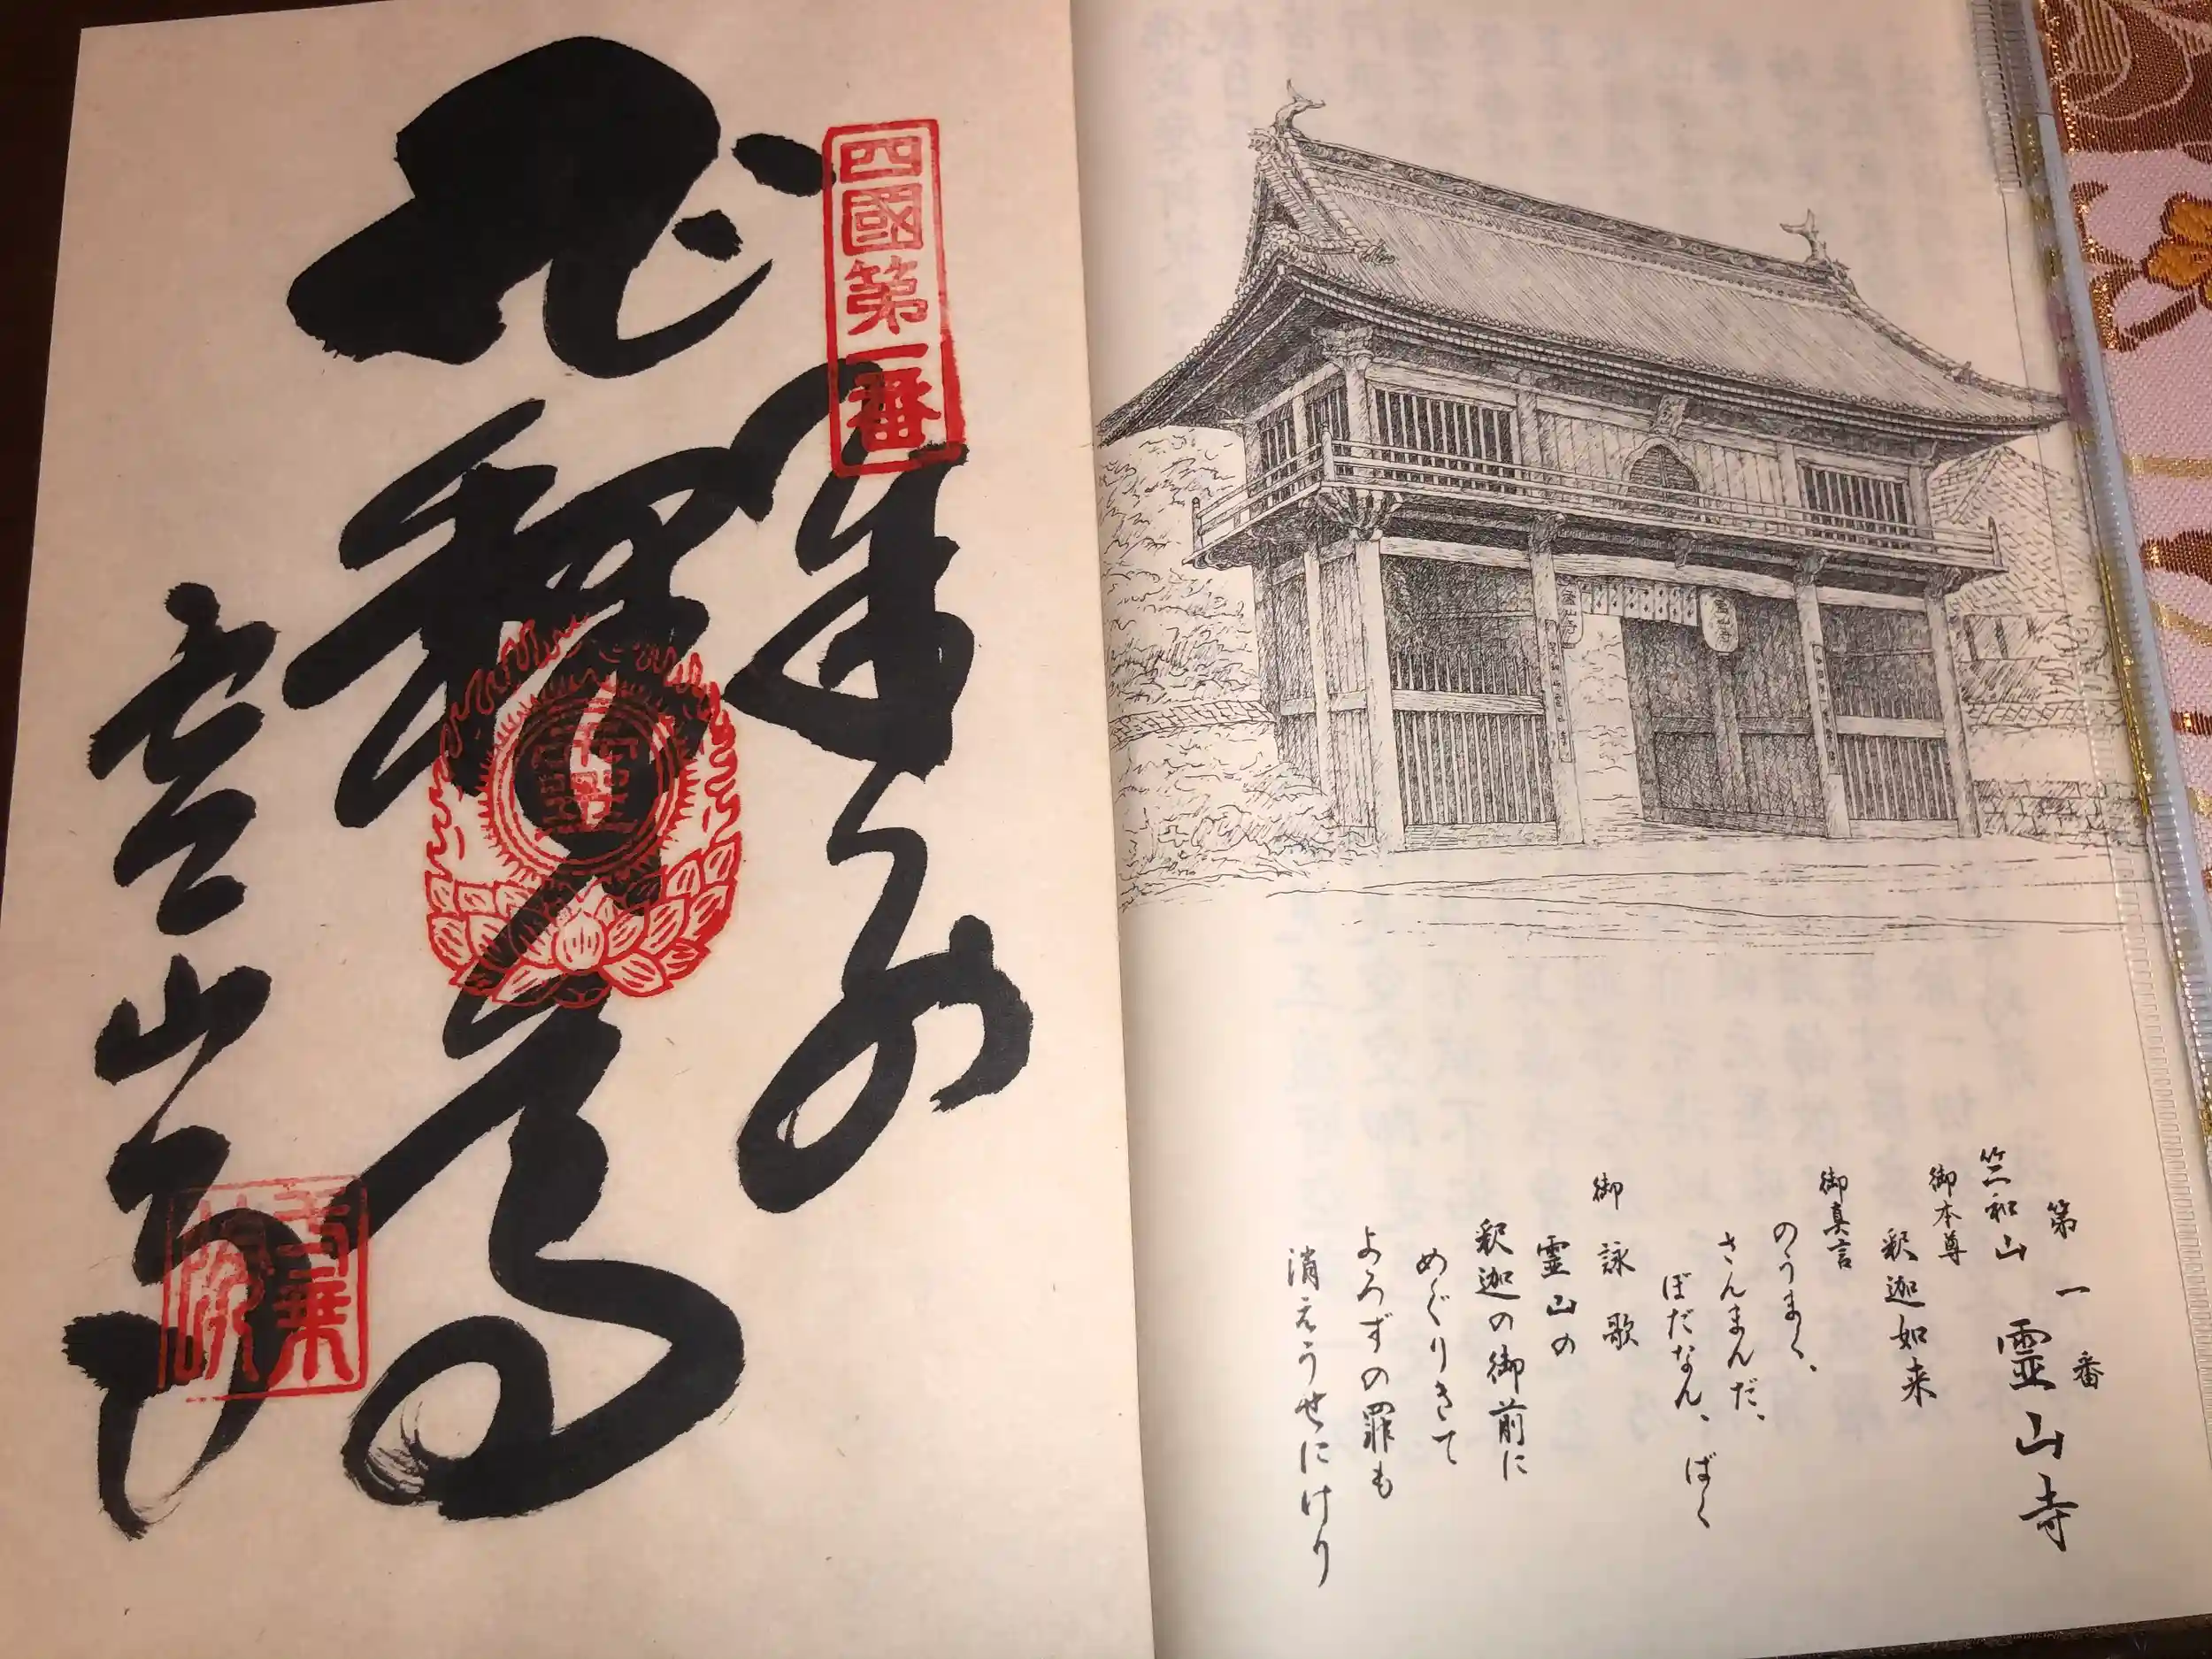 第一番
竺和山 霊山寺
御本尊
釈迦如来
御真言
のうまく、
さんまんだ、
ぼだなん、ばく
御詠歌
霊山の
釈迦の御前に
めぐりきて
よろずの罪も
消えうせにけり
霊山寺
四國第一番
奉納
釋迦
霊山寺